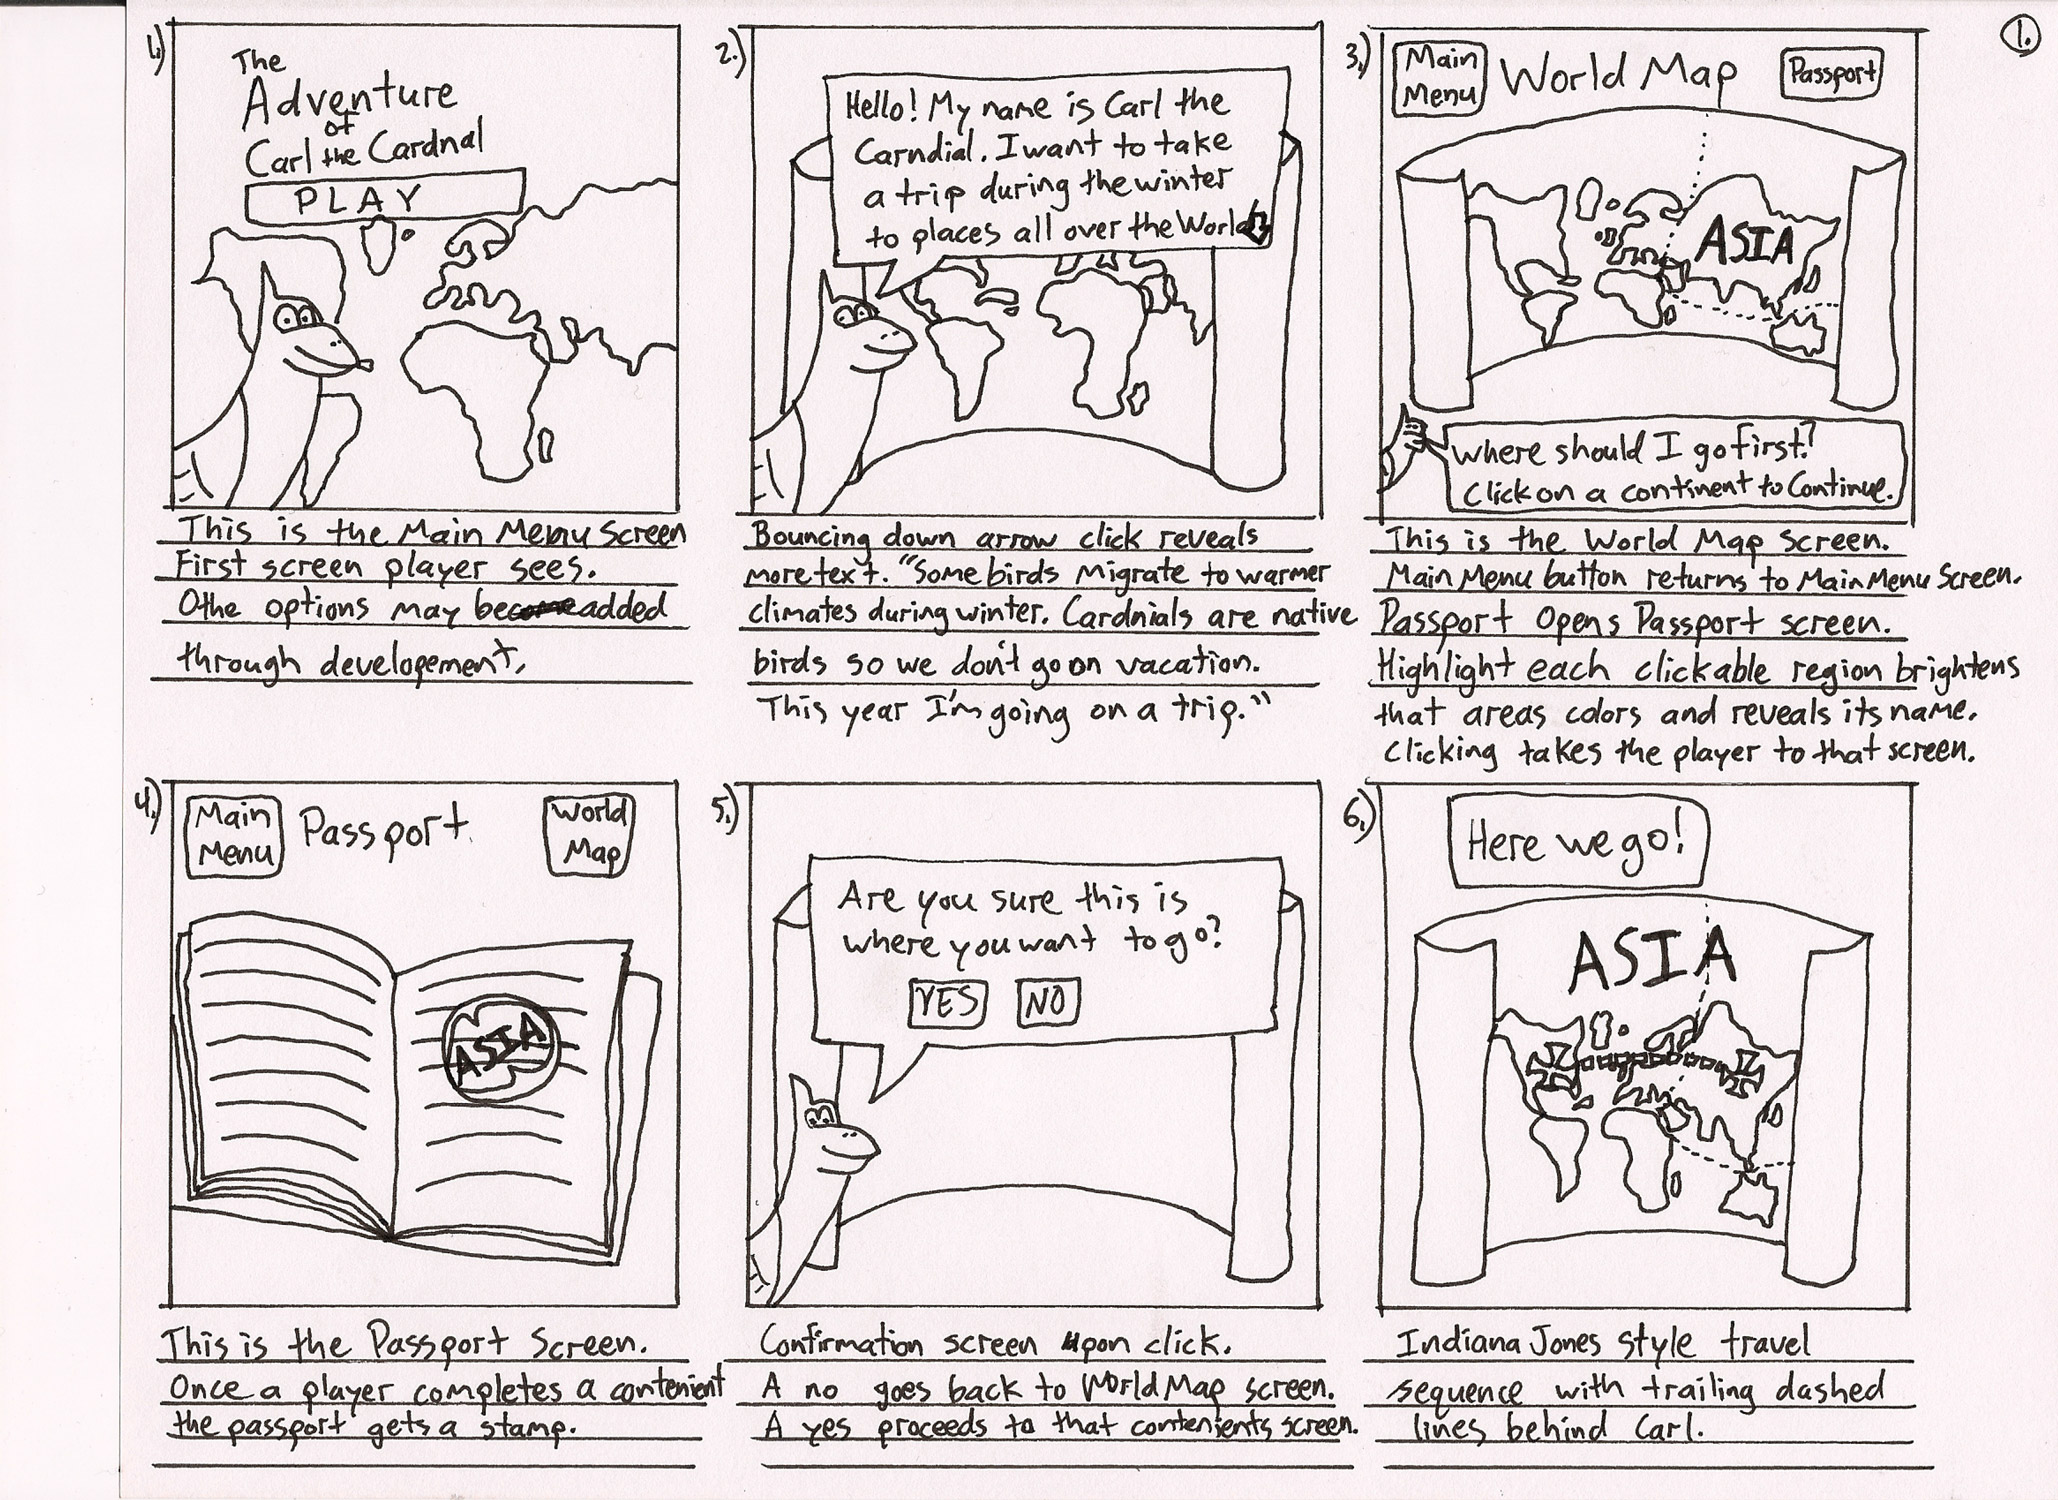 1.
1.)
The
Adventure
of
Carl the Cardnal
PLAY
This is the Main Menu Screen
First screen player sees.
Othe options may be added
through developement.
2.)
Hello! My name is Carl the
Carndial. I want to take
a trip during the winter
to places all over the World
Bouncing down arrow click reveals
more text. "Some birds Migrate to warmer
climates during winter. Cardnials are native
birds so we don't go on vacation.
This year I'm going on a trip."
3.)
Main
Menu
World Map
Passport
ASIA
Where should I go first?
Click on a continent to Continue.
This is the World Map Screen.
Main Menu button returns to Main Menu Screen.
Passport Opens Passport screen.
Highlight each clickable region brightens
that areas colors and reveals its name.
Clicking takes the player to that screen.
4.)
Main
Menu
Passport
World
Map
ASIA
This is the Passport Screen.
Once a player completes a contenient
the passport gets a stamp.
5.)
Are you sure this is
where you want to go?
YES NO
Confirmation screen upon click.
A no goes back to World Map screen.
A yes proceeds to that contenients screen.
6.)
Here we go!
ASIA
Indiana Jones style travel
sequence with trailing dashed
lines behind Carl.